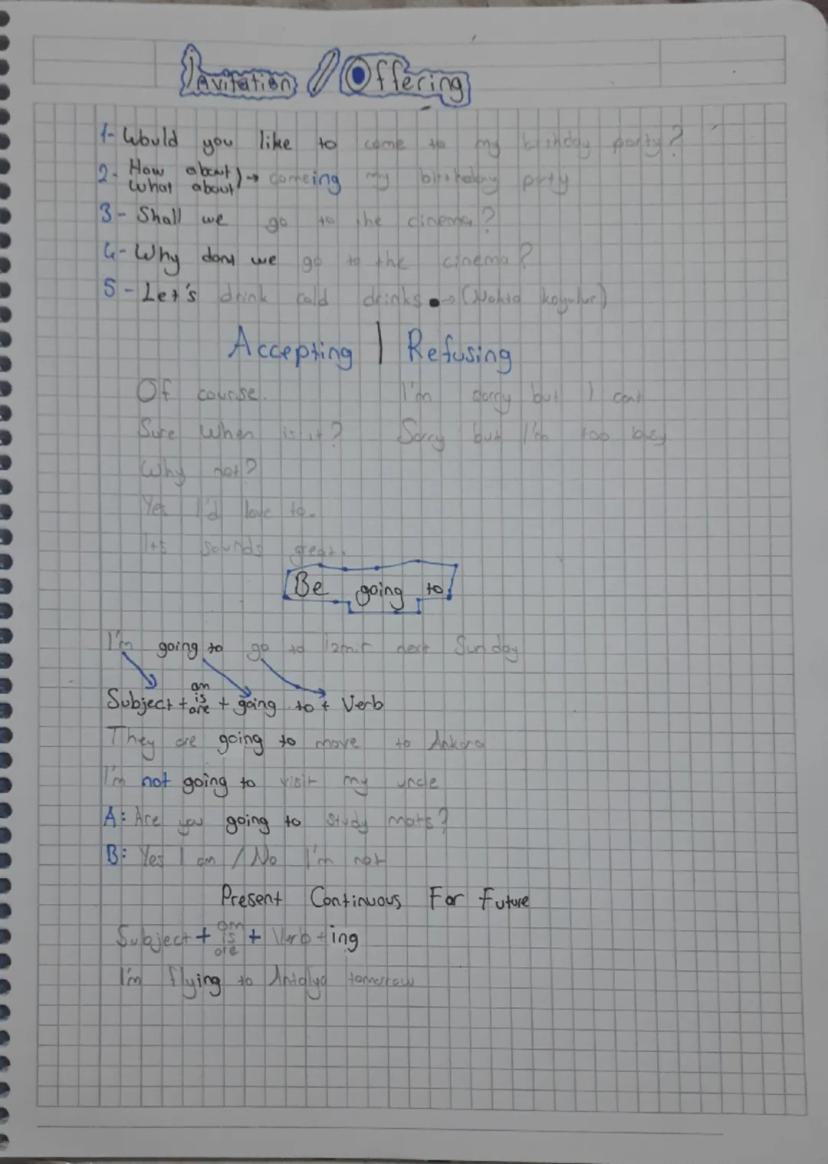 Invitation / Offering
1- Would you like to come to my birthday party?
2- How about
What about ) → comeing my birthday prty
3- Shall we go to the cinema?
4- Why dont we go to the cinema?
5- Let's drink cold drinks. → (Nokta koyulur)
Accepting | Refusing
Of course. I'm sorry but I cant
Sure When is it? Sorry but I'm too busy
Why not?
Yes I'd love to.
It's sounds great.
Be going to
I'm going to go to İzmir next Sunday
Subject + am is are + going to + Verb
They are going to move to Ankara
I'm not going to visit my uncle
A: Are you going to study mats?
B: Yes I am / No I'm not
Present Continuous For Future
Subject + am is are + Verb + ing
I'm flying to Antalya tomorrow